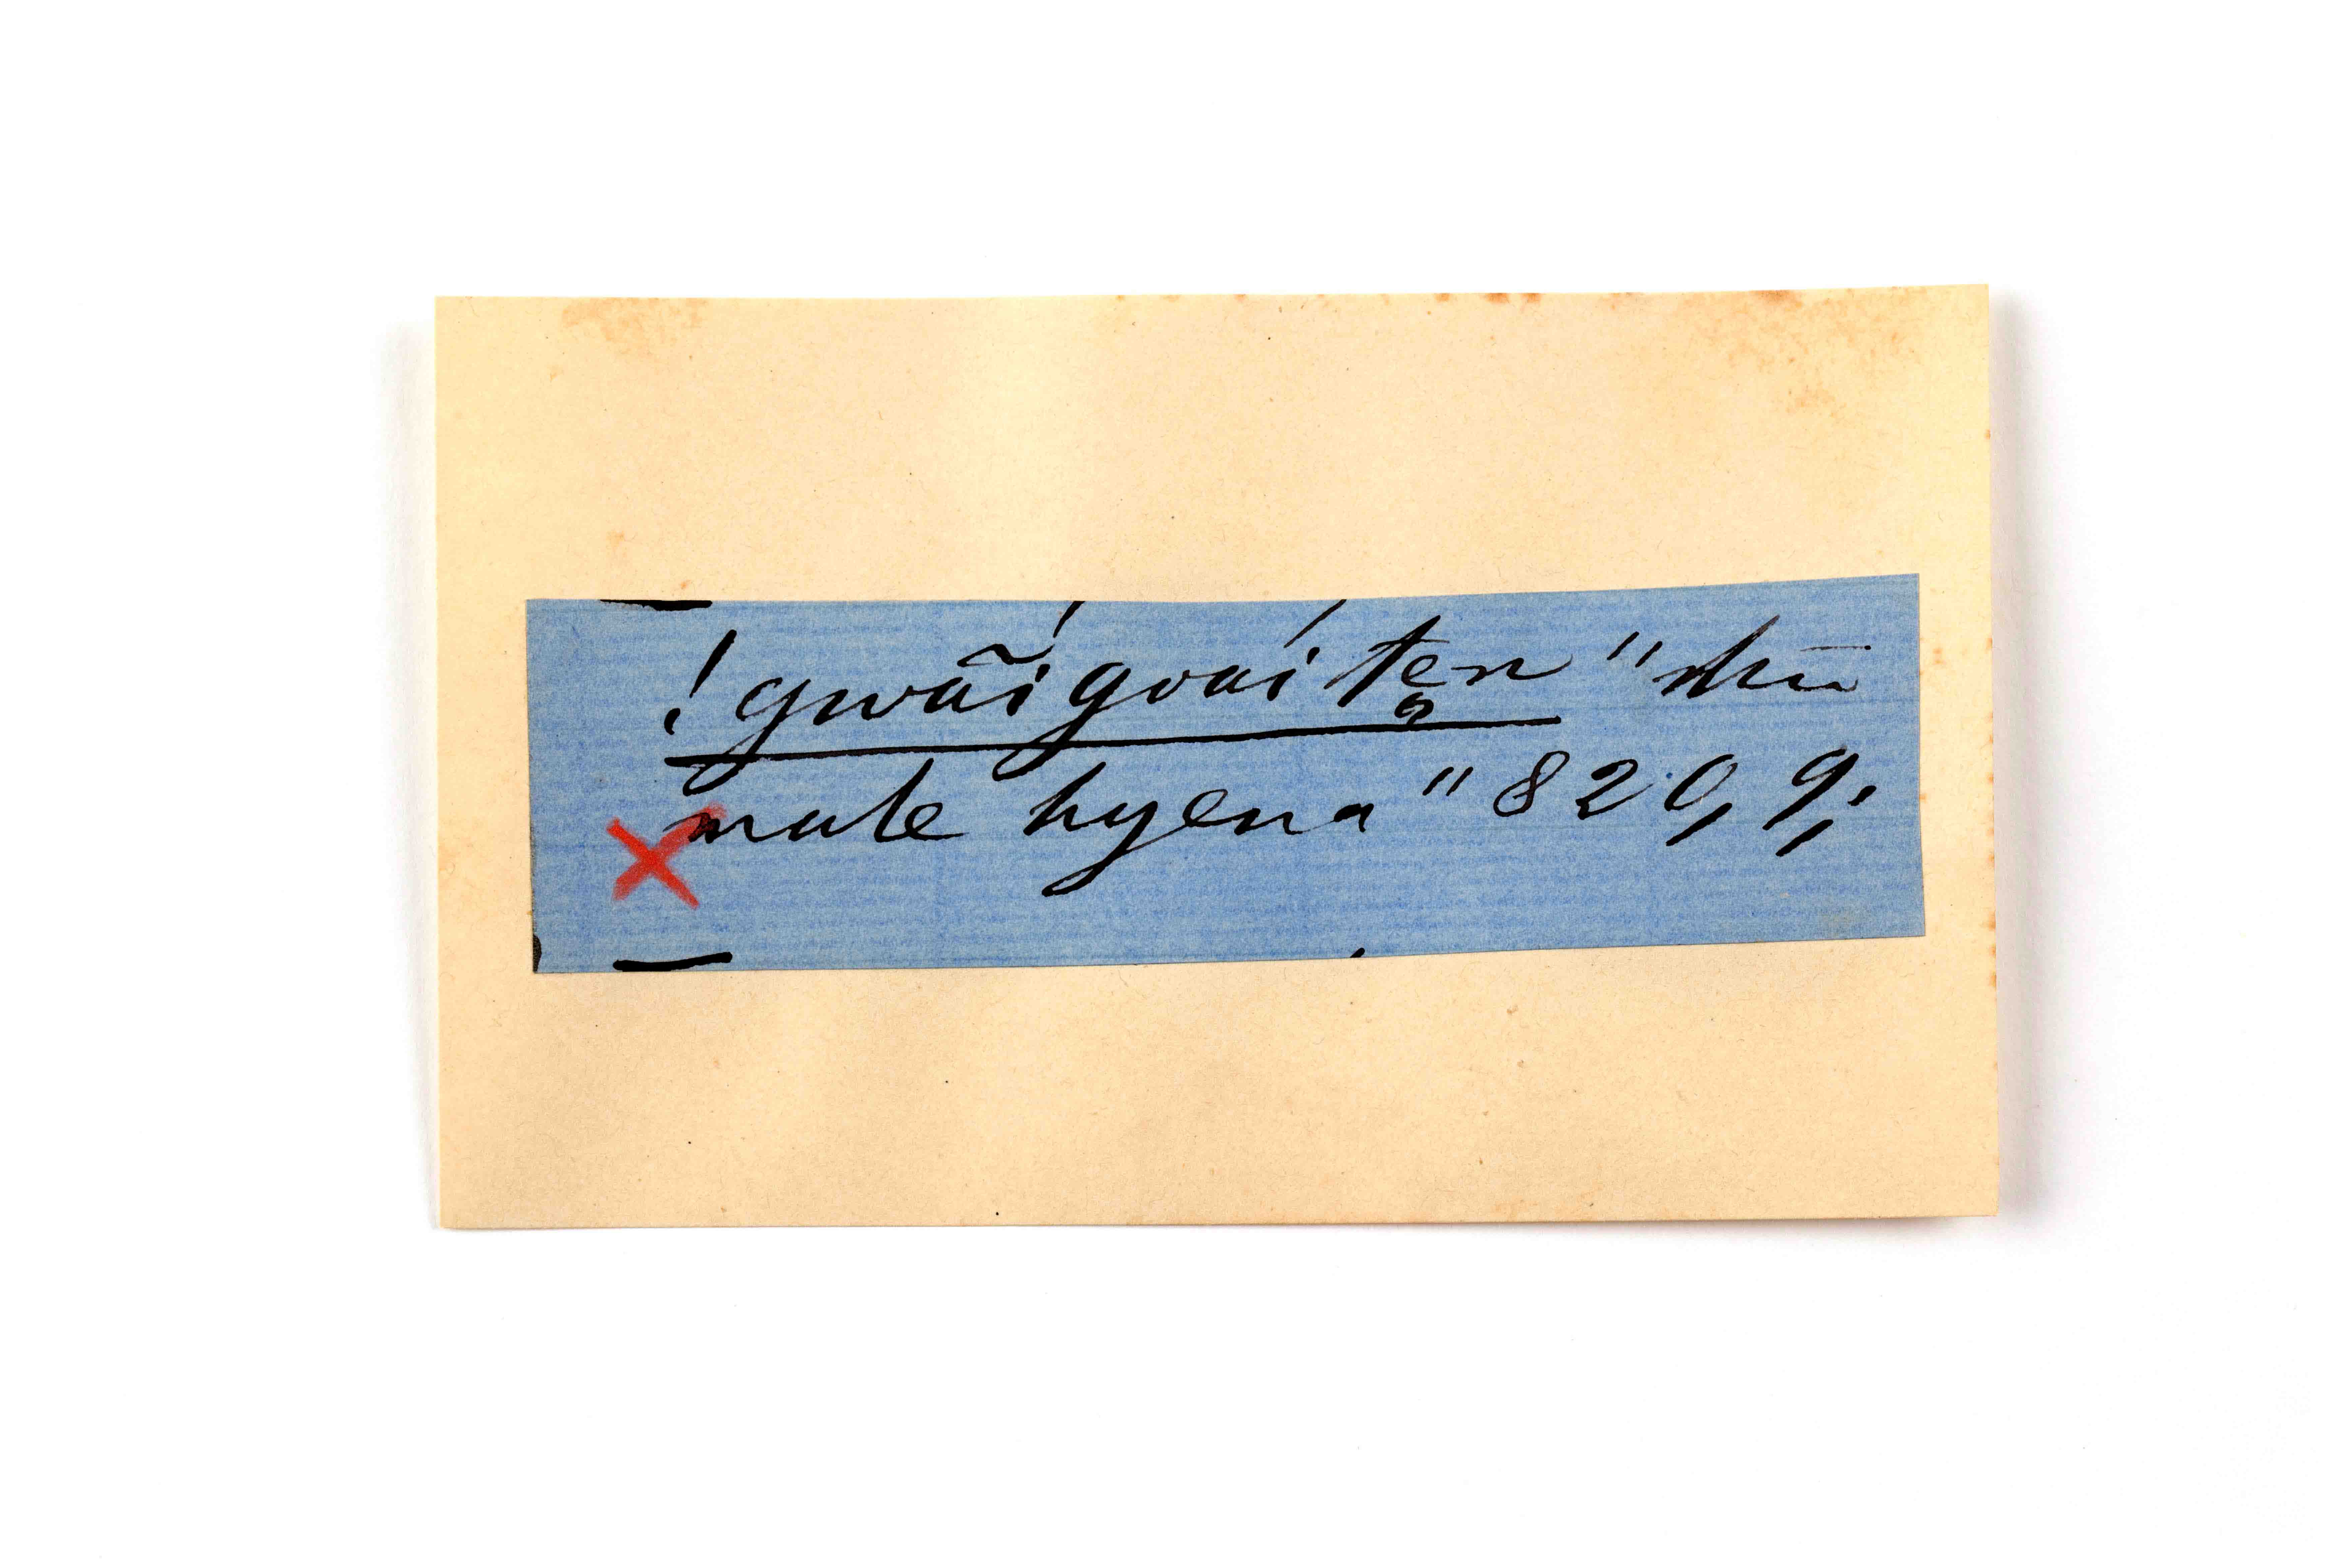 !gwãí gwaí ten "the
male hyena" 820, 9,;